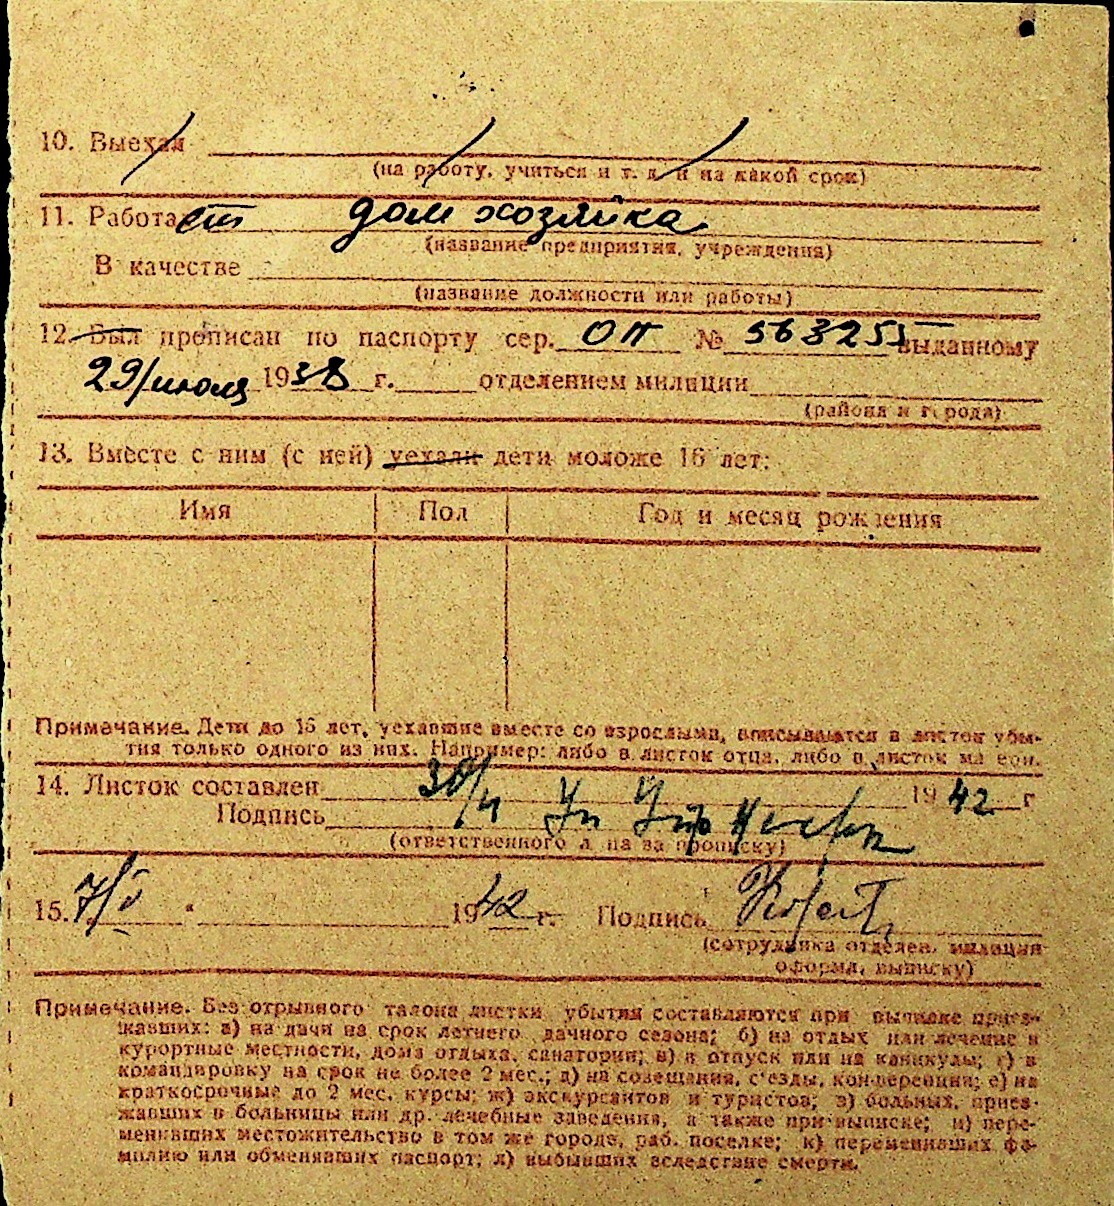 10. Выехал
(на работу, учиться и т. д. и на какой срок)
11. Работает дом хозяйка
(название предприятия, учреждения)
В качестве
(название должности или работы)
12. Был прописан по паспорту сер. ОП № 563255 выданному
29/июля 1938 г. отделением милиции
(района и города)
13. Вместе с ним (с ней) уехали дети моложе 16 лет:
Имя Пол Год и месяц рождения
Примечание. Дети до 16 лет, уехавшие вместе со взрослыми, вписываются в листок убы-
тия только одного из них. Например: либо в листок отца, либо в листок матери.
14. Листок составлен 30/4 1942 г
Подпись Уп Упр
(ответственного лица за прописку)
15. 7/5 " 1942 г. Подпись
(сотрудника отделен. милиции
оформл. выписку)
Примечание. Без отрывного талона листки убытия составляются при выписке приез-
жавших: а) на дачи на срок летнего дачного сезона; б) на отдых или лечение в
курортные местности, дома отдыха, санатории; в) в отпуск или на каникулы; г) в
командировку на срок не более 2 мес.; д) на совещания, с'езды, конференции; е) на
краткосрочные до 2 мес. курсы; ж) экскурсантов и туристов; з) больных, приез-
жавших в больницы или др. лечебные заведения, а также при выписке; и) пере-
менивших местожительство в том же городе, раб. поселке; к) переменивших фа-
милию или обменявших паспорт; л) выбывших вследствие смерти.